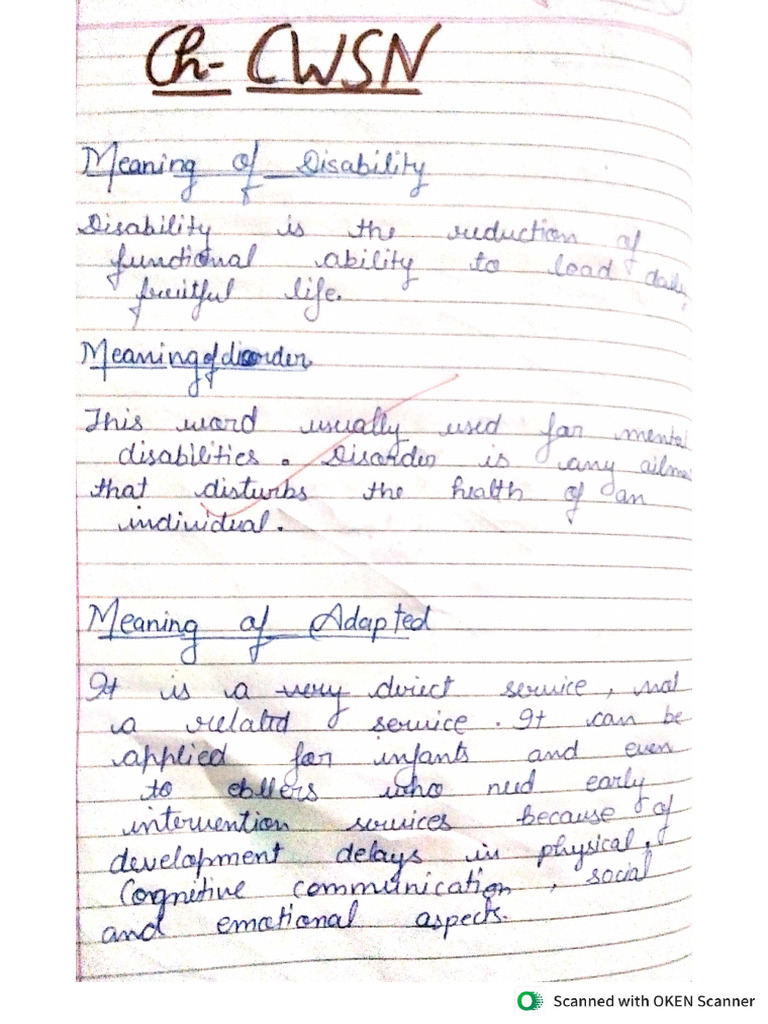 Ch- CWSN
Meaning of Disability
Disability is the reduction of
functional ability to lead daily
fruitful life.
Meaning of disorder
This word usually used for mental
disabilities. Disorder is any ailme
that disturbs the health of an
individual.
Meaning of Adapted
It is a very direct service, not
a related service. It can be
applied for infants and even
to who need early
intervention services because of
development delays in physical,
Cognitive communication, social
and emotional aspects.
Scanned with OKEN Scanner